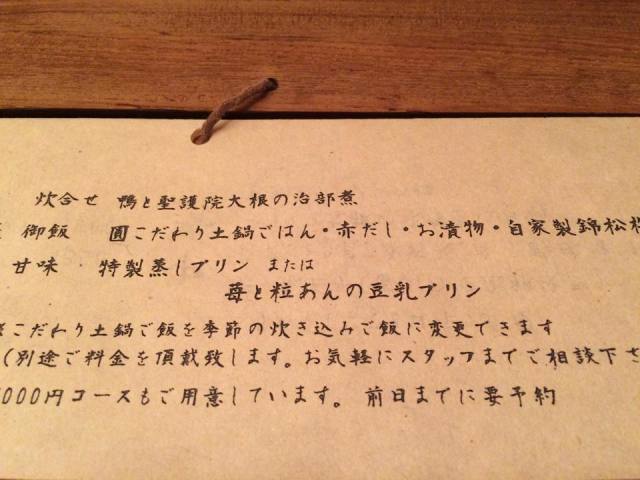 炊合せ 鴨と聖護院大根の治部煮
御飯 圓こだわり土鍋ごはん・赤だし・お漬物・自家製錦松梅
甘味 特製蒸しプリン または
苺と粒あんの豆乳プリン
こだわり土鍋ご飯を季節の炊き込みご飯に変更できます
(別途ご料金を頂戴致します。お気軽にスタッフまでご相談下さ
000円コースもご用意しています。 前日までに要予約